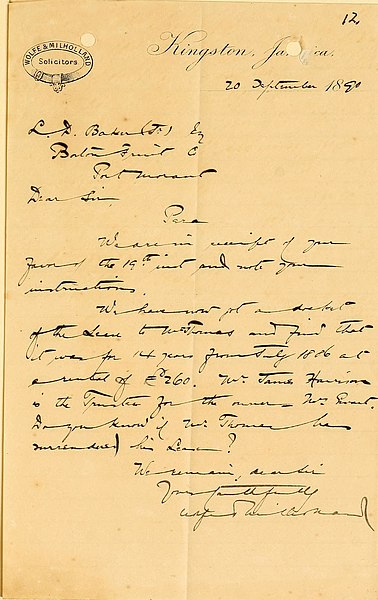 12
WOLFE & MILHOLLAND
Solicitors.
Kingston, Jamaica.
20 September 1890
L. D. Baker (Jr) Eq
Boston Fruit C
Port Morant
Dear Sir
Para
We are in receipt of your
favor of the 19th inst and note your
instructions.
We have now got a docket
of the Lease to Mr Thomas and find that
it was for 14 years from July 1886 at
a rental of £260. Mr. James Harrison
is the Trustee for the owner Mrs
Do you know if Mr. Thomas has
surrendered his Lease?
We remain, dear Sir
Yours faithfully
Wolfe & Milholland